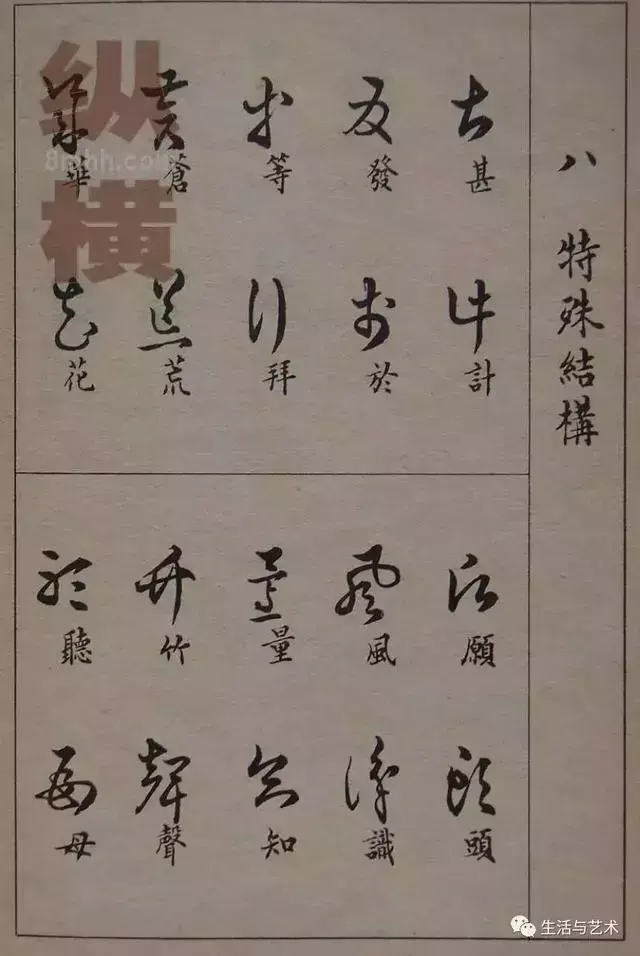 八 特殊結構
甚
計
發
於
等
拜
蒼
荒
華
花
願
頭
風
識
量
知
竹
聲
聽
母
纵横
生活与艺术